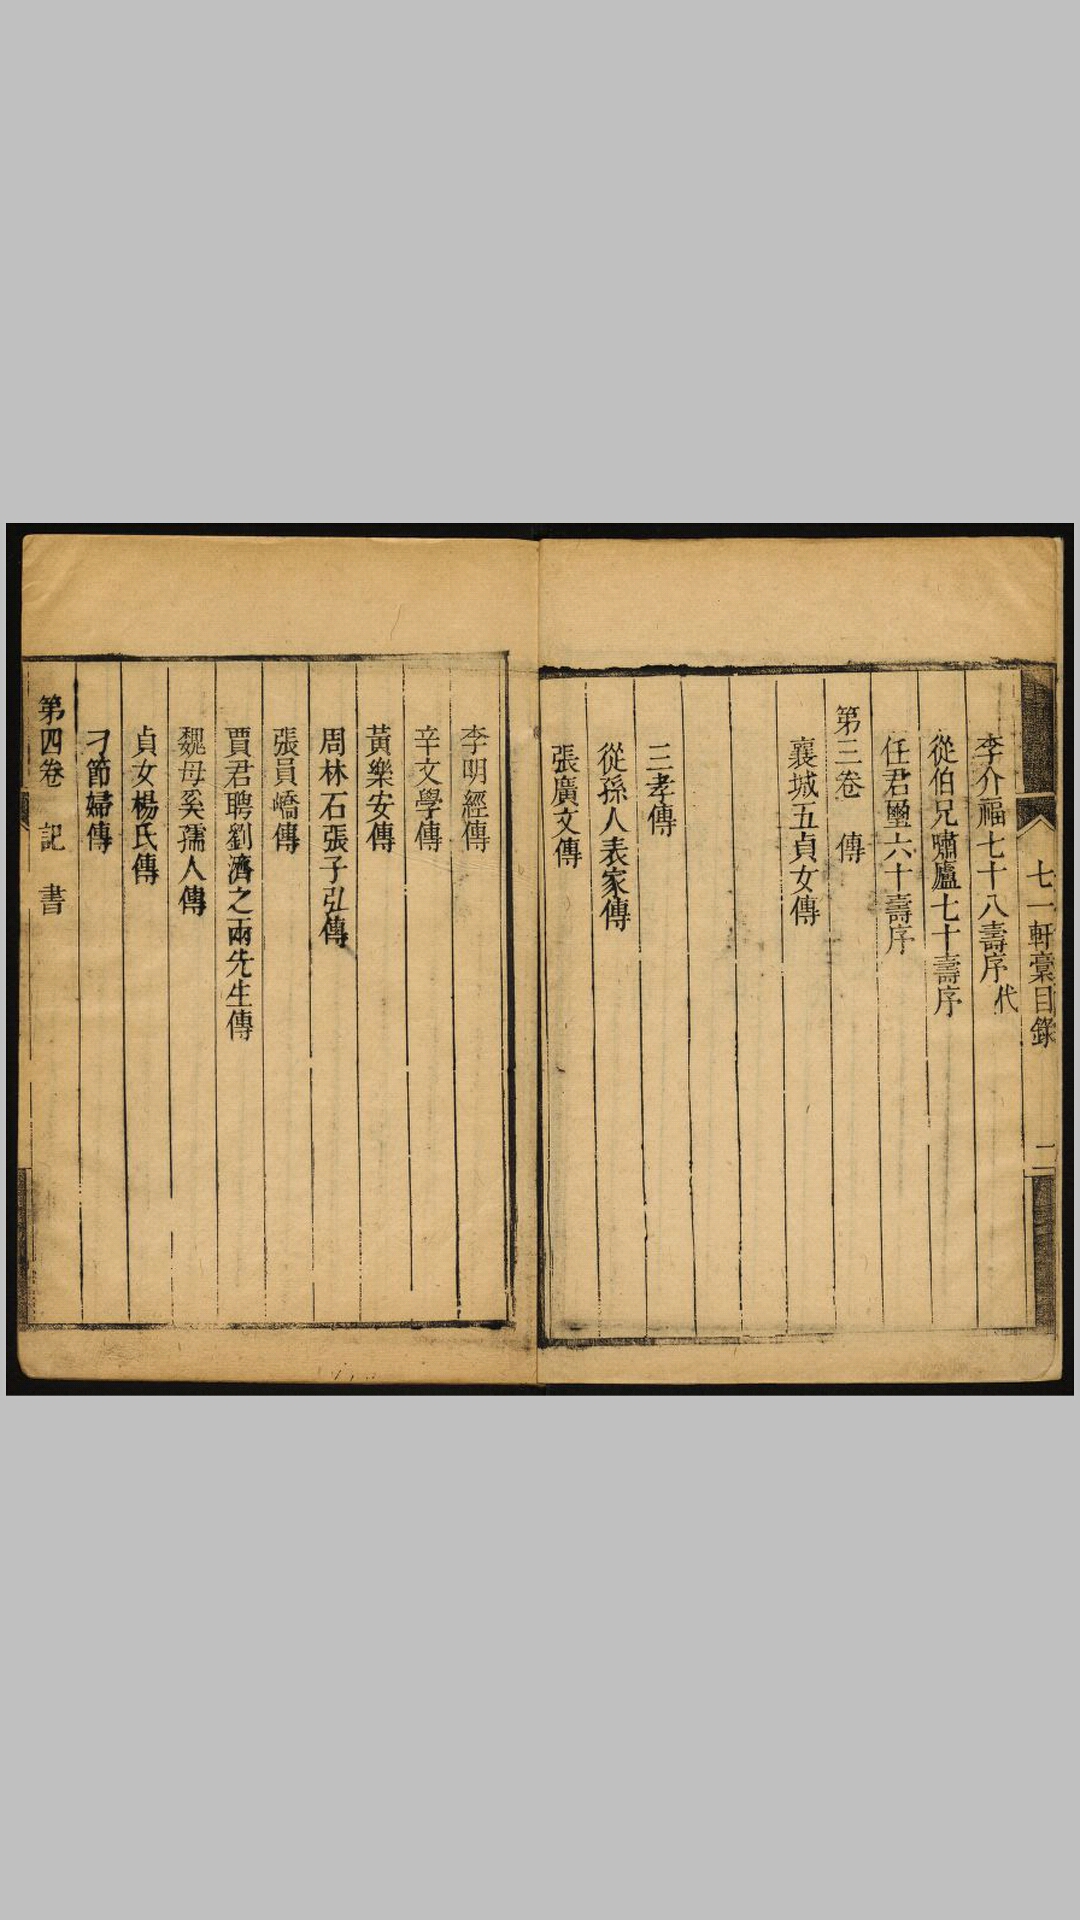 七一軒稾目錄
二
李介福七十八壽序代
從伯兄嘯廬七十壽序
任君璽六十壽序
第三卷 傳
襄城五貞女傳
三孝傳
從孫人表家傳
張廣文傳
李明經傳
辛文學傳
黃樂安傳
周林石張子弘傳
張員嶠傳
賈君聘劉濟之兩先生傳
魏母奚孺人傳
貞女楊氏傳
刁節婦傳
第四卷 記 書